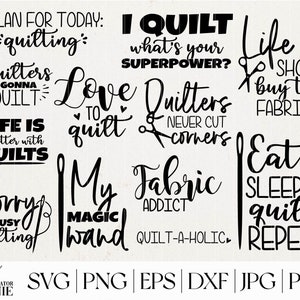 PLAN FOR TODAY:
quilting
I QUILT
what's your
SUPERPOWER?
Life
SHO
buy t
FABRI
quilters
GONNA
QUILT
Love
TO
quilt
Quilters
NEVER CUT
corners
LIFE IS
better with
QUILTS
My
MAGIC
wand
Fabric
ADDICT
QUILT-A-HOLIC
Eat
SLEEP
quilt
REPE
Sorry
BUSY
quilting
SVG | PNG | EPS | DXF | JPG | P